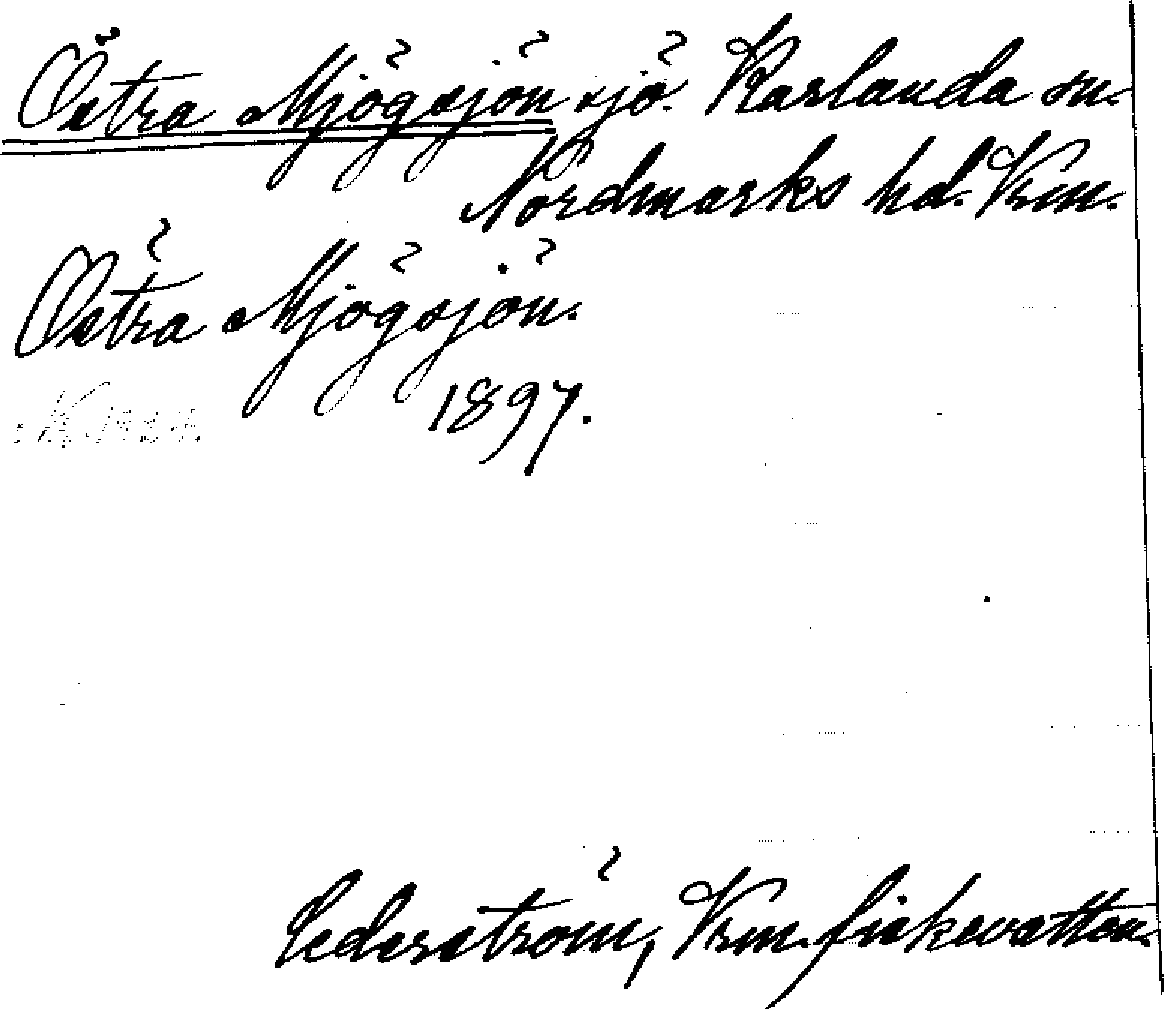 Östra Mjögsjön sjö. Karlanda sn.
Nordmarks hd. Vrm.
Östra Mjögsjön.
1897.
Cederström, Vrm. fiskevatten.